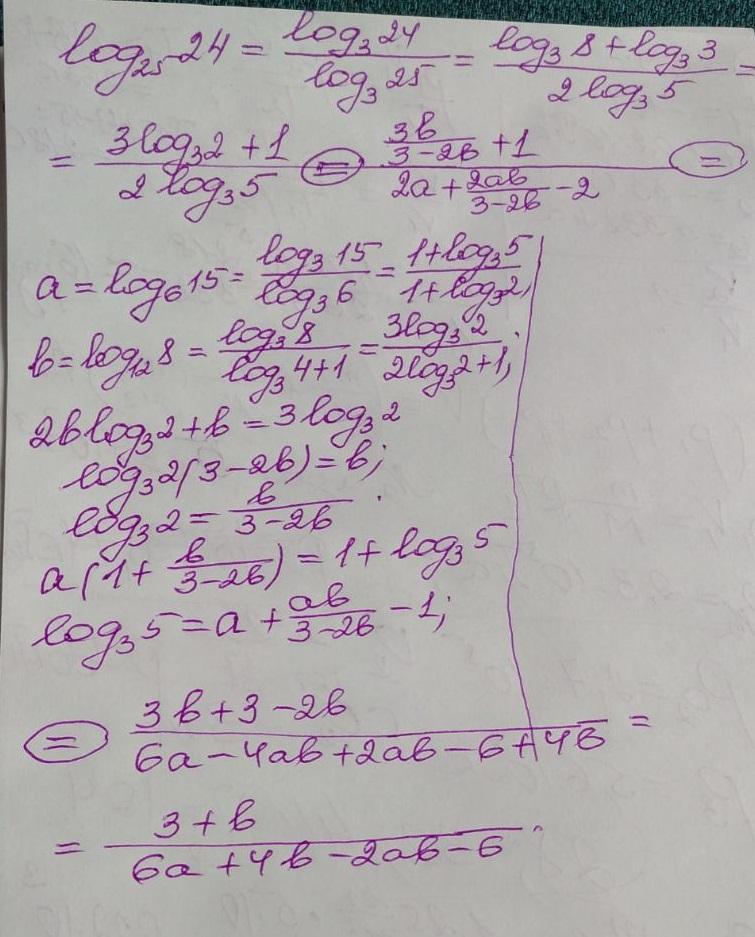 log₂₅ 24 = log₃ 24 / log₃ 25 = (log₃ 8 + log₃ 3) / (2 log₃ 5) =
= (3 log₃ 2 + 1) / (2 log₃ 5) = (3b/(3-2b) + 1) / (2a + 2ab/(3-2b) - 2) =
a = log₆ 15 = log₃ 15 / log₃ 6 = (1 + log₃ 5) / (1 + log₃ 2);
b = log₁₂ 8 = log₃ 8 / (log₃ 4 + 1) = 3 log₃ 2 / (2 log₃ 2 + 1);
2b log₃ 2 + b = 3 log₃ 2
log₃ 2 (3 - 2b) = b;
log₃ 2 = b / (3-2b).
a (1 + b/(3-2b)) = 1 + log₃ 5
log₃ 5 = a + ab/(3-2b) - 1;
= (3b + 3 - 2b) / (6a - 4ab + 2ab - 6 + 4b) =
= (3 + b) / (6a + 4b - 2ab - 6).